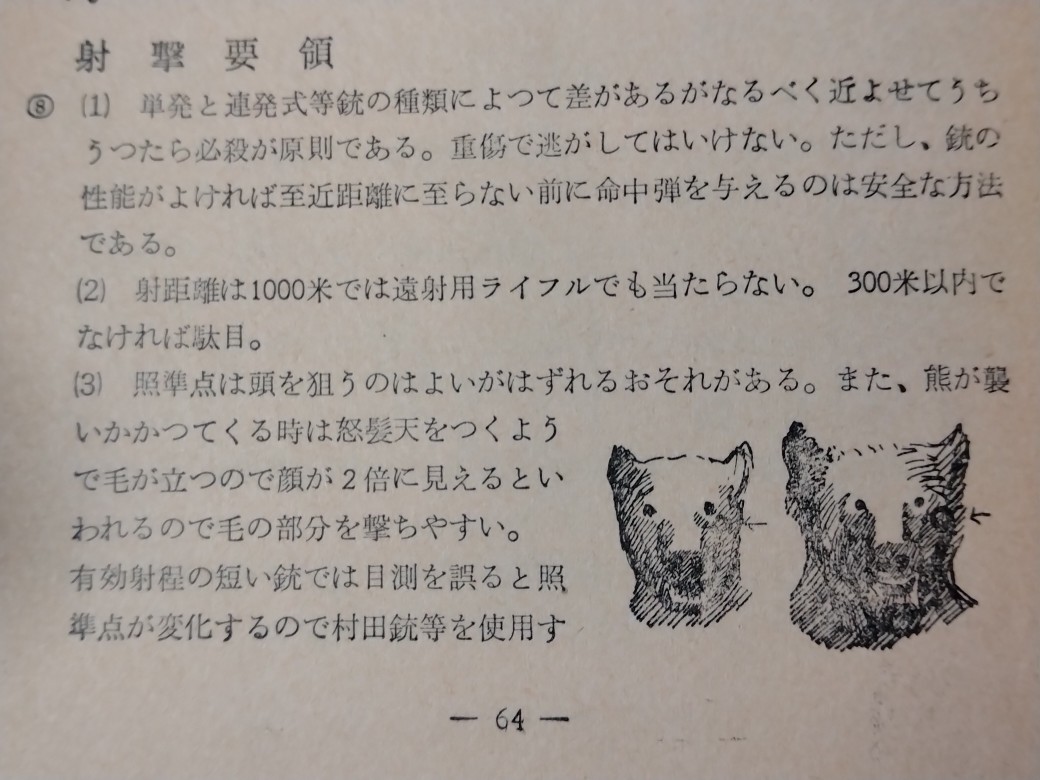 射撃要領
⑧ (1) 単発と連発式等銃の種類によつて差があるがなるべく近よせてうち
うつたら必殺が原則である。重傷で逃がしてはいけない。ただし、銃の
性能がよければ至近距離に至らない前に命中弾を与えるのは安全な方法
である。
(2) 射距離は1000米では遠射用ライフルでも当たらない。 300米以内で
なければ駄目。
(3) 照準点は頭を狙うのはよいがはずれるおそれがある。また、熊が襲
いかかつてくる時は怒髪天をつくよう
で毛が立つので顔が2倍に見えるとい
われるので毛の部分を撃ちやすい。
有効射程の短い銃では目測を誤ると照
準点が変化するので村田銃等を使用す
― 64 ―